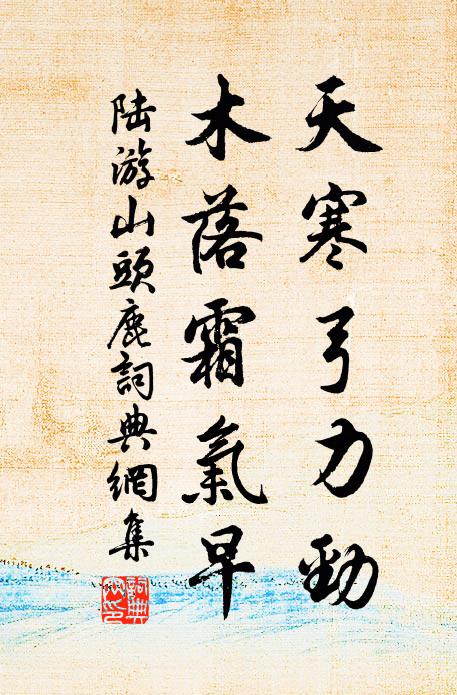 天寒弓力勁
木落霜氣早
陸游山頭鹿詞典網集